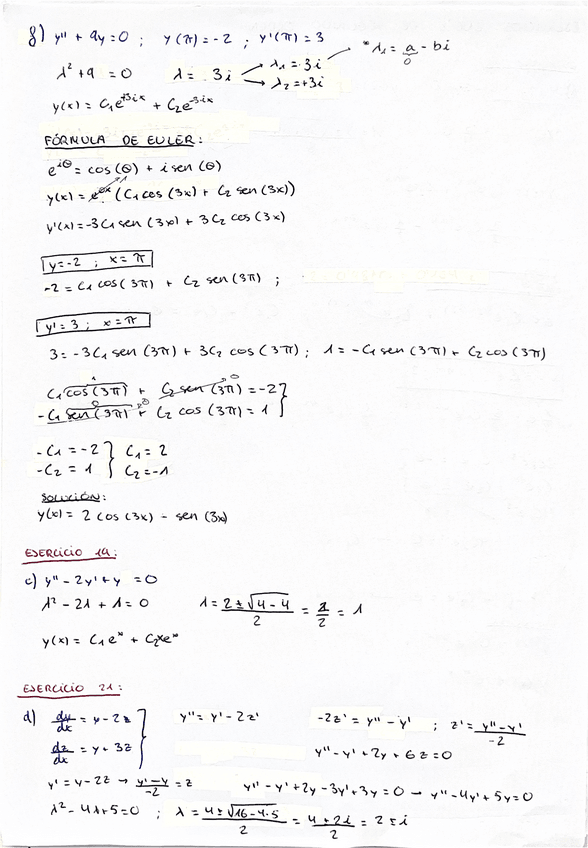 f) y'' + 9y = 0 ; y(π) = -2 ; y'(π) = 3 * λ1 = a - bi
0
λ² + 9 = 0 λ = 3i λ1 = -3i
λ2 = +3i
y(x) = C1e^{+3ix} + C2e^{-3ix}
FÓRMULA DE EULER:
e^{iθ} = cos(θ) + i sen(θ)
y(x) = e^{0x} (C1 cos(3x) + C2 sen(3x))
y'(x) = -3C1 sen(3x) + 3C2 cos(3x)
y = -2 ; x = π
-2 = C1 cos(3π) + C2 sen(3π) ;
y' = 3 ; x = π
3 = -3C1 sen(3π) + 3C2 cos(3π) ; 1 = -C1 sen(3π) + C2 cos(3π)
C1 cos(3π) + C2 sen(3π) = -2 }
-C1 sen(3π) + C2 cos(3π) = 1 }
-C1 = -2 } C1 = 2
-C2 = 1 } C2 = -1
SOLUCIÓN:
y(x) = 2 cos(3x) - sen(3x)
EJERCICIO 19:
c) y'' - 2y' + y = 0
λ² - 2λ + 1 = 0 λ = (2 ± √(4 - 4))/2 = 2/2 = 1
y(x) = C1e^x + C2xe^x
EJERCICIO 21:
d) dy/dx = y - 2z } y'' = y' - 2z' -2z' = y'' - y' ; z' = (y'' - y')/-2
dz/dx = y + 3z } y'' - y' + 2y + 6z = 0
y' = y - 2z → (y' - y)/-2 = z y'' - y' + 2y - 3y' + 3y = 0 → y'' - 4y' + 5y = 0
λ² - 4λ + 5 = 0 ; λ = (4 ± √(16 - 4·5))/2 = (4 ± 2i)/2 = 2 ± i